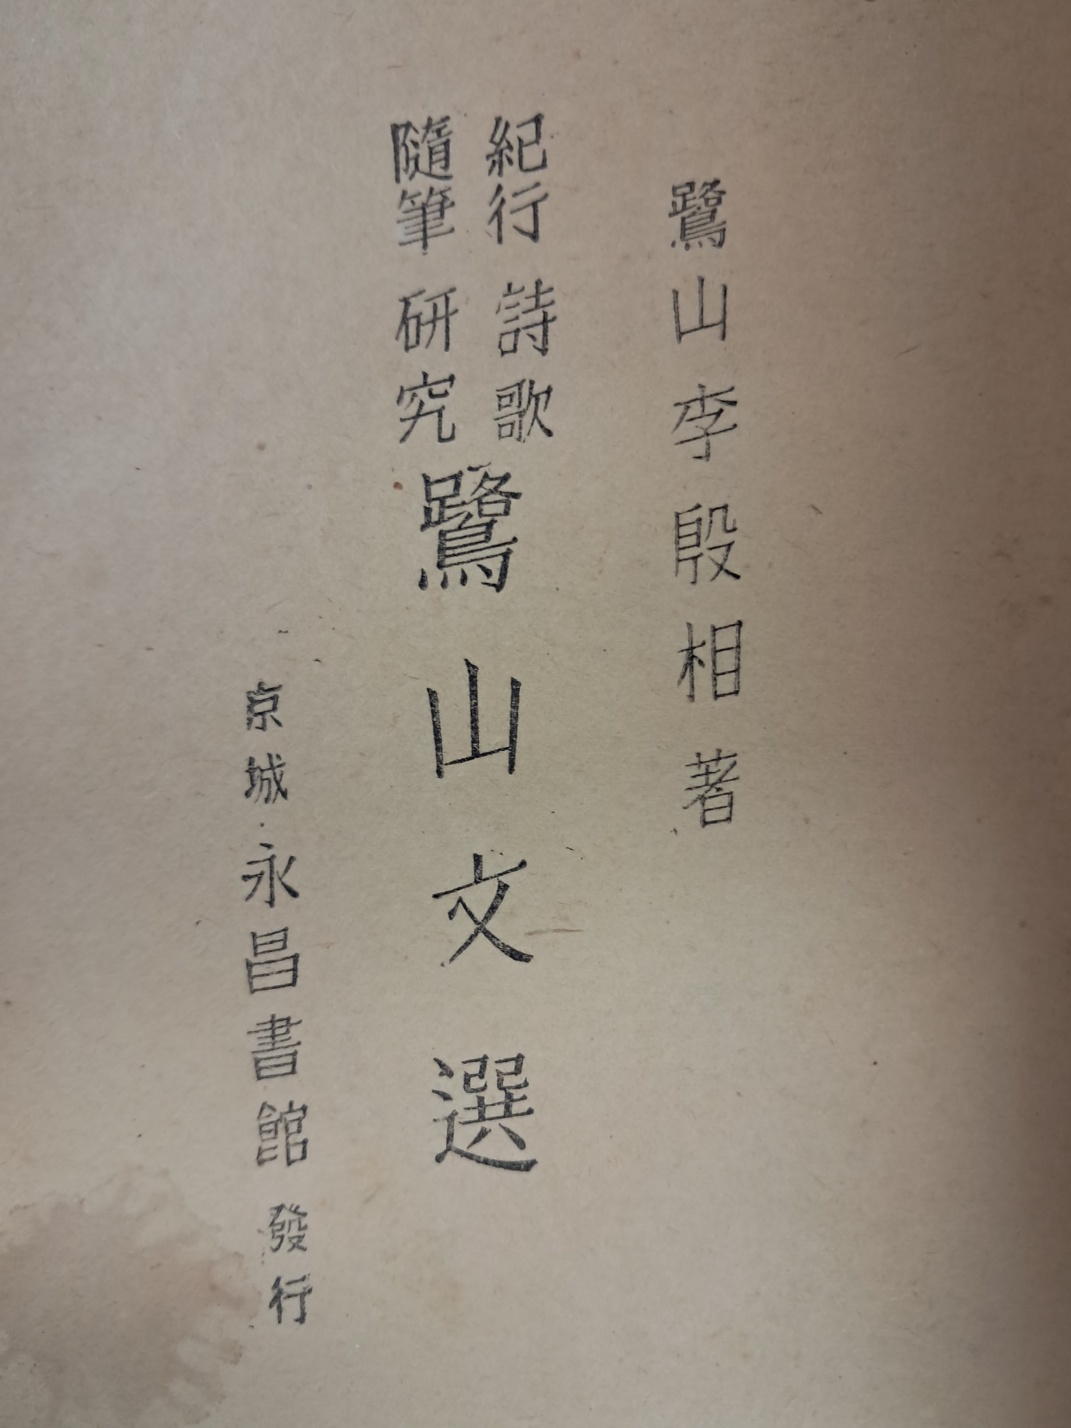 鷺山李殷相著
紀行 詩歌
隨筆 研究
鷺山文選
京城·永昌書館發行